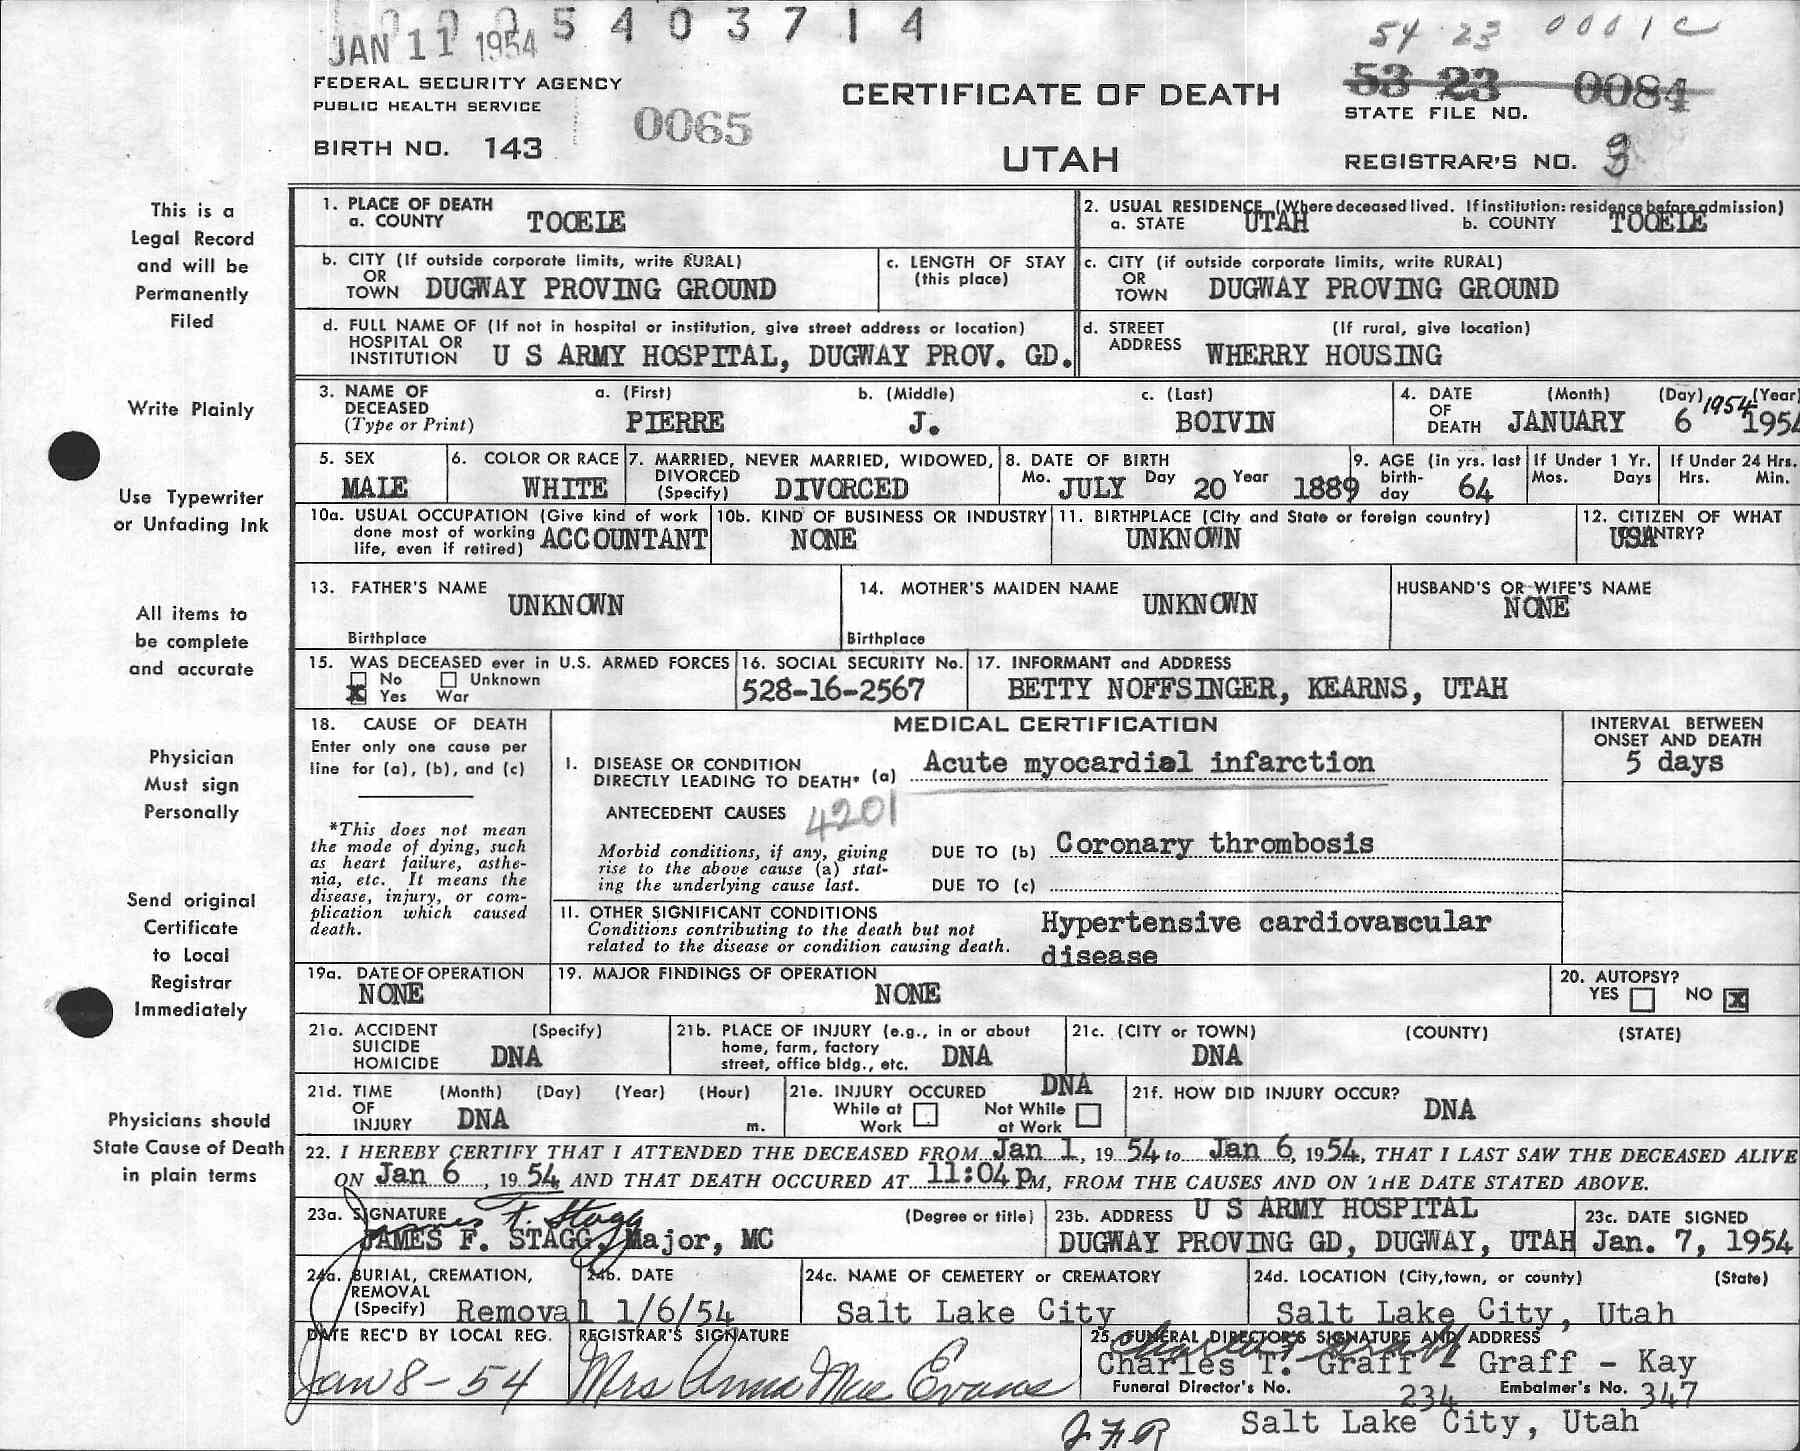 0 0 0 5 4 0 3 7 1 4
JAN 11 1954
54 23 0001 C
FEDERAL SECURITY AGENCY
PUBLIC HEALTH SERVICE
BIRTH NO. 143
0065
CERTIFICATE OF DEATH
UTAH
53 23 0084
STATE FILE NO.
REGISTRAR'S NO. 3
This is a
Legal Record
and will be
Permanently
Filed
Write Plainly
Use Typewriter
or Unfading Ink
All items to
be complete
and accurate
Physician
Must sign
Personally
Send original
Certificate
to Local
Registrar
Immediately
Physicians should
State Cause of Death
in plain terms
1. PLACE OF DEATH
a. COUNTY TOOELE
2. USUAL RESIDENCE (Where deceased lived. If institution: residence before admission)
a. STATE UTAH b. COUNTY TOOELE
b. CITY (If outside corporate limits, write RURAL)
OR
TOWN DUGWAY PROVING GROUND
c. LENGTH OF STAY
(this place)
c. CITY (if outside corporate limits, write RURAL)
OR
TOWN DUGWAY PROVING GROUND
d. FULL NAME OF (If not in hospital or institution, give street address or location)
HOSPITAL OR
INSTITUTION U S ARMY HOSPITAL, DUGWAY PROV. GD.
d. STREET (If rural, give location)
ADDRESS WHERRY HOUSING
3. NAME OF
DECEASED
(Type or Print)
a. (First) b. (Middle) c. (Last)
PIERRE J. BOIVIN
4. DATE (Month) (Day) (Year)
OF
DEATH JANUARY 6 1954 1954
5. SEX
MALE
6. COLOR OR RACE
WHITE
7. MARRIED, NEVER MARRIED, WIDOWED,
DIVORCED
(Specify) DIVORCED
8. DATE OF BIRTH
Mo. JULY Day 20 Year 1889
9. AGE (in yrs. last
birth-
day 64
If Under 1 Yr.
Mos. Days
If Under 24 Hrs.
Hrs. Min.
10a. USUAL OCCUPATION (Give kind of work
done most of working
life, even if retired) ACCOUNTANT
10b. KIND OF BUSINESS OR INDUSTRY
NONE
11. BIRTHPLACE (City and State or foreign country)
UNKNOWN
12. CITIZEN OF WHAT
COUNTRY?
USA
13. FATHER'S NAME
UNKNOWN
Birthplace
14. MOTHER'S MAIDEN NAME
UNKNOWN
Birthplace
HUSBAND'S OR WIFE'S NAME
NONE
15. WAS DECEASED ever in U.S. ARMED FORCES
No Unknown
X Yes War
16. SOCIAL SECURITY No.
528-16-2567
17. INFORMANT and ADDRESS
BETTY NOFFSINGER, KEARNS, UTAH
18. CAUSE OF DEATH
Enter only one cause per
line for (a), (b), and (c)
*This does not mean
the mode of dying, such
as heart failure, asthe-
nia, etc. It means the
disease, injury, or com-
plication which caused
death.
MEDICAL CERTIFICATION
INTERVAL BETWEEN
ONSET AND DEATH
5 days
I. DISEASE OR CONDITION
DIRECTLY LEADING TO DEATH* (a) Acute myocardial infarction
ANTECEDENT CAUSES 4201
Morbid conditions, if any, giving
rise to the above cause (a) stat-
ing the underlying cause last.
DUE TO (b) Coronary thrombosis
DUE TO (c)
II. OTHER SIGNIFICANT CONDITIONS
Conditions contributing to the death but not
related to the disease or condition causing death.
Hypertensive cardiovascular
disease
19a. DATE OF OPERATION
NONE
19. MAJOR FINDINGS OF OPERATION
NONE
20. AUTOPSY?
YES NO X
21a. ACCIDENT (Specify)
SUICIDE
HOMICIDE DNA
21b. PLACE OF INJURY (e.g., in or about
home, farm, factory
street, office bldg., etc. DNA
21c. (CITY or TOWN) (COUNTY) (STATE)
DNA
21d. TIME (Month) (Day) (Year) (Hour)
OF
INJURY DNA m.
21e. INJURY OCCURED DNA
While at Not While
Work at Work
21f. HOW DID INJURY OCCUR?
DNA
22. I HEREBY CERTIFY THAT I ATTENDED THE DECEASED FROM Jan 1, 19 54 to Jan 6, 1954, THAT I LAST SAW THE DECEASED ALIVE
ON Jan 6, 19 54, AND THAT DEATH OCCURED AT 11:04 PM, FROM THE CAUSES AND ON THE DATE STATED ABOVE.
23a. SIGNATURE James F. Stagg (Degree or title)
JAMES F. STAGG, Major, MC
23b. ADDRESS U S ARMY HOSPITAL
DUGWAY PROVING GD, DUGWAY, UTAH
23c. DATE SIGNED
Jan. 7, 1954
24a. BURIAL, CREMATION,
REMOVAL
(Specify) Removal
24b. DATE
1/6/54
24c. NAME OF CEMETERY or CREMATORY
Salt Lake City
24d. LOCATION (City, town, or county) (State)
Salt Lake City, Utah
DATE REC'D BY LOCAL REG.
Jan 8-54
REGISTRAR'S SIGNATURE
Mrs Anna Mae Evans
25. FUNERAL DIRECTOR'S SIGNATURE AND ADDRESS
Charles T. Graff
Charles T. Graff - Graff - Kay
Funeral Director's No. 234 Embalmer's No. 347
Salt Lake City, Utah